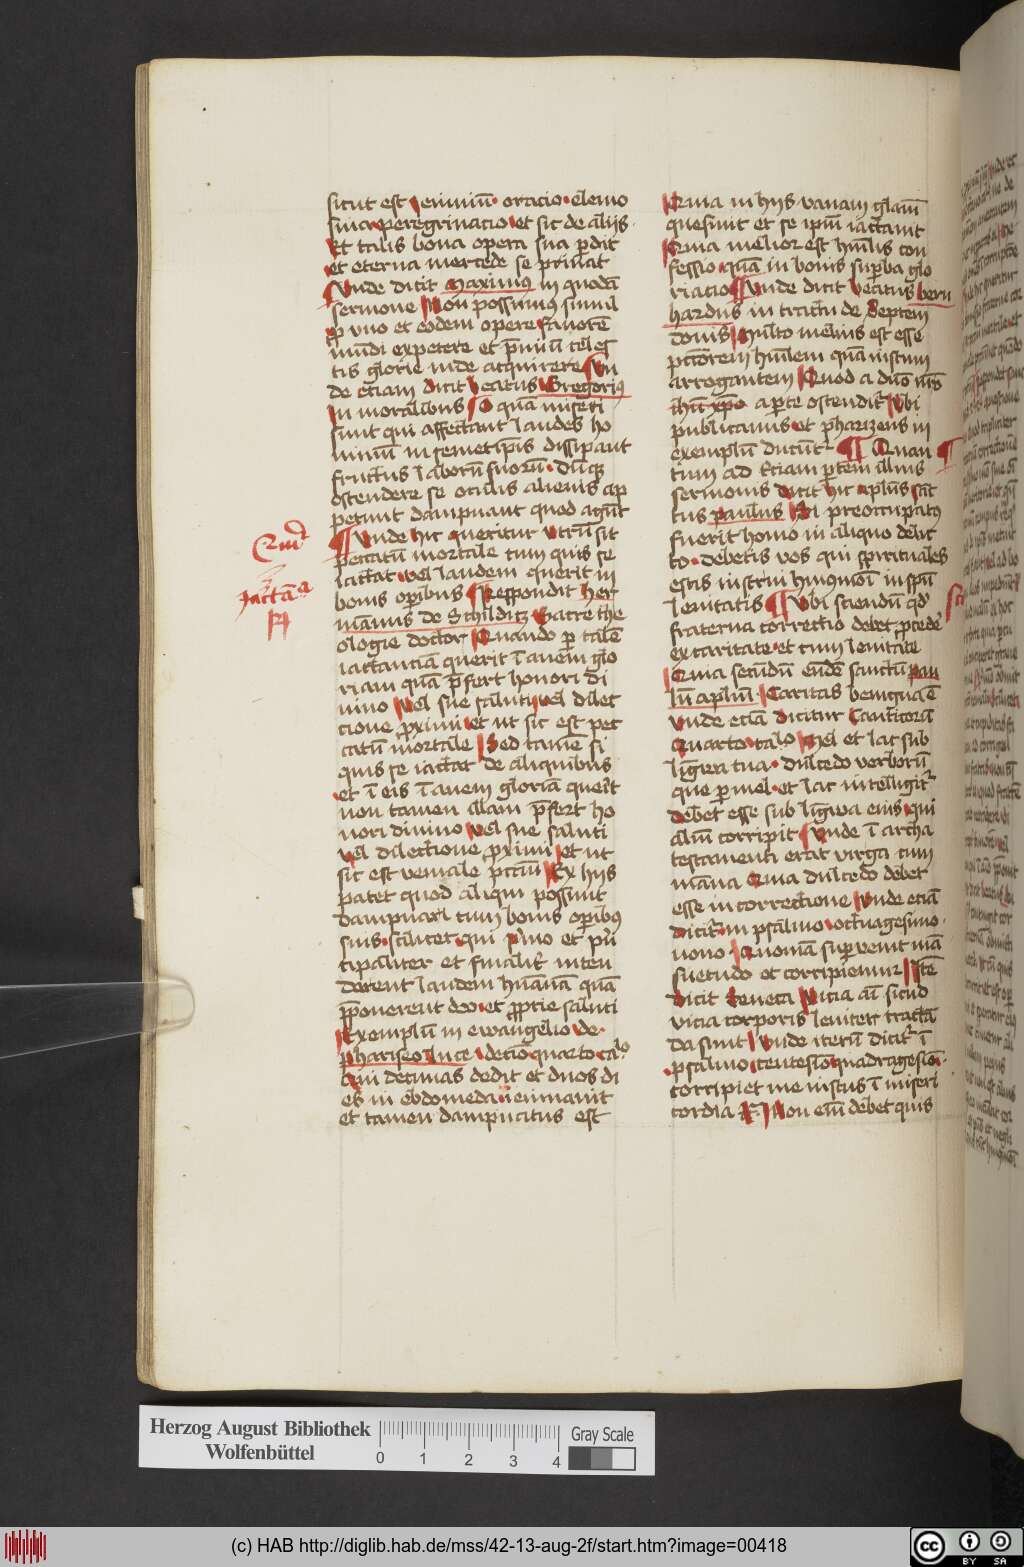 sicut est Ieiuniū· oracio· elemo
sina· peregrinacio et sic de alijs·
Et talis bona opera sua p̄dit
et eterna mercede se priuat
Vnde dicit Maximus in quodā
sermone Non possumus simul
p vno et eodem opere fauorē
mūdi expetere et p̄miū celes
tis glorie inde acquirere Vn
de eciam dicit beatus Gregorius
in moralibus O quā miseri
sunt qui affectant laudes ho
minū in semetipsis dissipant
fructus laborū suorū· Dūqz
ostendere se oculis alienis ap
petunt dampnant quod agūt
Vnde hic queritur vtrū sit
peccatū mortale cum quis se
iactat vel laudem querit in
bonis opibus Respondit her
mannus de Schilditz Sacre the
ologie doctor Quando p talē
iactanciā querit ī anem glo
riam quā p̄fert honori di
uino Vel sue saluti vel dilec
cione proximi et ut sic est pec
catū mortale Sed tamē si
quis se iactat de aliquibus
et ī eis ī anem gloriā querit
non tamen illam p̄fert ho
nori diuino Vel sue saluti
vel dilectione proximi et ut
sic est veniale pctm̄ Ex hys
patet quod aliqui possunt
dampnari cum bonis opibus
suis· scilicet qui primo et prin
cipaliter et finaliter inten
derent laudem humanā quā
p̄ponerent deo et proprie saluti
Exemplū in ewangelio de
phariseo luce decio quarto calo
Qui decimas dedit et duos di
es in ebdomeda ieiunauit
et tamen dampnatus est
Quid
Iactācia
Quia in hijs vanam gloriam
quesiuit et se ipm̄ iactauit
Quia melior est humilis con
fessio quā in bonis supba glo
riacio Vnde dicit beatus bern
hardus in tractu de Septem
donis Multo melius est esse
pctorem humilem quā iustum
arrogantem Quod a dūo nr̄o
ihū xpo aperte ostenditur Vbi
publicanus et pharizeus in
exemplū ducūtur Quan
tum ad terciam partem illius
sermonis dicit hic aplus sāc
tus paulus Si preoccupatus
fuerit homo in aliquo delic
to· debetis vos qui spirituales
estis instrui huiusmōi in spū
lenitatis Vbi sciendū qd
fraterna correctio debet procede
ex caritate et cum lenitate
Quia secundū eundē sanctū pau
lū aplūm Caritas benigna ē
vnde eciā dicitur Canticorū
Quarto calo Mel et lac sub
lingwa tua· dulcedo verborū
que per mel· et lac intelligitur
debet esse sub lingwa eius qui
aliū corripit Vnde ī archa
testamenti erat virga cum
māna Quia dulcedo debet
esse in correctione Vnde eciā
dicitur in psalmo octuagesimo·
nono· Quoniā superuenit mā
suetudo et corripiemur Istē
dicit Seneca Vicia aīi sicud
vicia corporis leniter tractā
da sunt Vnde iterū dicitur ī
psalmo centesīo quadragesīo·
corripiet me iustus ī miseri
cordia Non enī debet quis
Herzog August Bibliothek
Wolfenbüttel
0 1 2 3 4
Gray Scale
(c) HAB http://diglib.hab.de/mss/42-13-aug-2f/start.htm?image=00418
cc BY SA